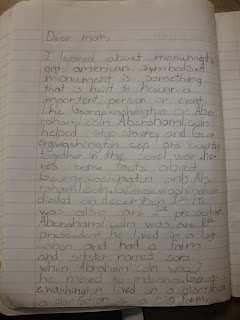 Dear mom,
I learned about monumets
and american symbols. A
monument is something
that is built to honar a
important person or event
like George washington or Abe
rahamlicoln. Aberahamlicoln
helped stop slavery and Geor
ergwashington cep are country
together in the werld war. here
yes some facts about
George washington and Abe
rahamlicoln. George washington
dieded on december He
was also are 1st presedent.
Aberahamlicoln was are 16th
pressedent. he lived in a log
capan and had a farm
and sitster named sara.
when Abarahamlicoln was 7
he moved to indiana. Georg-
ewashington lived on a plantation
a plantation is a big farm.